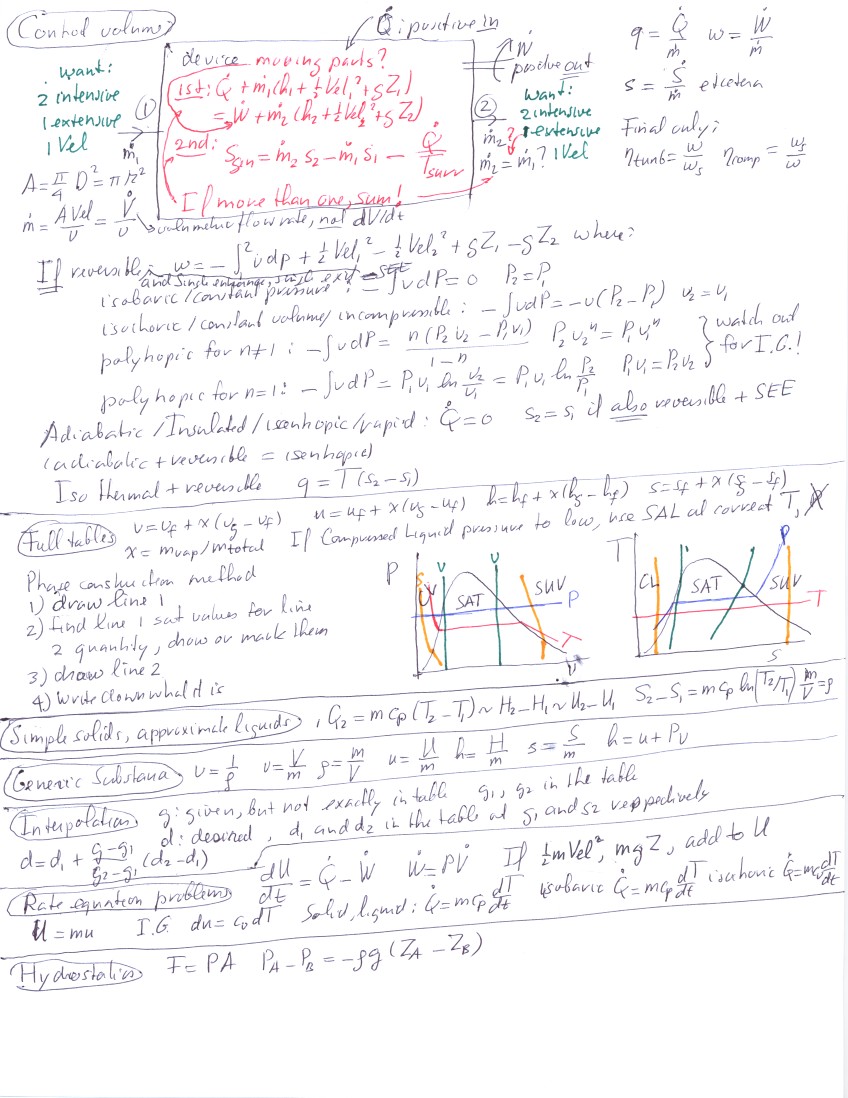 Control volume:
Q̇: positive in
Ẇ
positive out
q = Q̇/ṁ w = Ẇ/ṁ
s = Ṡ/ṁ etcetera
Final only:
ηturb = w/ws ηcomp = ws/w
want:
2 intensive
1 extensive
1 Vel
①
ṁ1
device moving parts?
1st: Q̇ + ṁ1(h1 + ½Vel1² + gZ1)
= Ẇ + ṁ2(h2 + ½Vel2² + gZ2)
2nd: Ṡgen = ṁ2 s2 - ṁ1 s1 - Q̇/Tsurr
If more than one, sum!
②
want:
2 intensive
1 extensive
1 Vel
ṁ2?
ṁ2 = ṁ1?
A = π/4 D² = πr²
ṁ = A Vel/v = V̇/v
volumetric flow rate, not dV/dt
If reversible: w = -∫₁² v dp + ½ Vel1² - ½ Vel2² + gZ1 - gZ2 where:
and single entrance, single exit = SEE
isobaric/constant pressure: -∫vdP = 0 P2 = P1
isochoric/constant volume/incompressible: -∫vdP = -v(P2 - P1) v2 = v1
polytropic for n≠1: -∫vdP = n(P2 v2 - P1 v1)/(1-n) P2 v2ⁿ = P1 v1ⁿ
polytropic for n=1: -∫vdP = P1 v1 ln v2/v1 = P1 v1 ln P2/P1 P1 v1 = P2 v2
watch out
for I.G.!
Adiabatic/Insulated/isentropic/rapid: Q̇ = 0 s2 = s1 if also reversible + SEE
(adiabatic + reversible = isentropic)
Iso thermal + reversible q = T(s2 - s1)
Full tables v = vf + x(vg - vf) u = uf + x(ug - uf) h = hf + x(hg - hf) s = sf + x(sg - sf)
x = mvap/mtotal If Compressed Liquid pressure to low, use SAL at correct T,
Phase construction method
1) draw line 1
2) find line 1 sat values for line
2 quantity, draw or mark them
3) draw line 2
4) write down what it is
P
s
v
v
SAT
SUV
P
T
v
T
CL
SAT
SUV
P
T
s
Simple solids, approximate liquids: Q12 = mcp(T2 - T1) ~ H2 - H1 ~ U2 - U1 S2 - S1 = mcp ln(T2/T1) m/V = ρ
Generic Substance v = 1/ρ v = V/m ρ = m/V u = U/m h = H/m s = S/m h = u + Pv
Interpolation g: given, but not exactly in table g1, g2 in the table
d: desired, d1 and d2 in the table at g1 and g2 reppectively
d = d1 + (g - g1)/(g2 - g1) (d2 - d1)
Rate equation problems dU/dt = Q̇ - Ẇ Ẇ = PV̇ If ½mVel², mgZ, add to U
U = mu I.G du = cv dT Solid, liquid: Q̇ = mcp dT/dt isobaric Q̇ = mcp dT/dt isochoric Q̇ = mcv dT/dt
Hydrostatics F = PA PA - PB = -ρg(ZA - ZB)